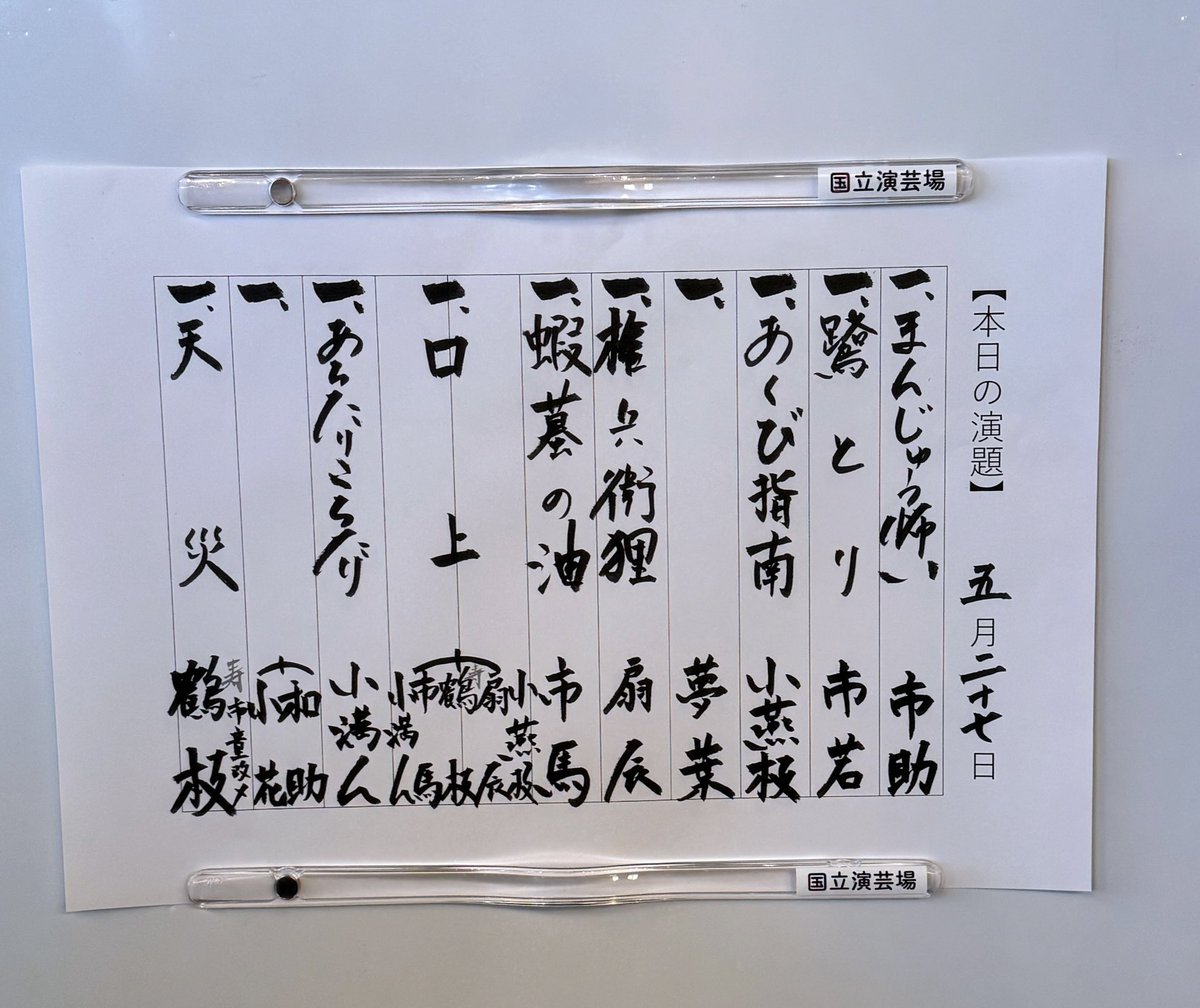 国立演芸場
【本日の演題】 五月二十七日
一、まんじゅう怖い 市助
一、鷺とり 市若
一、あくび指南 小燕枝
一、 夢葉
一、権兵衛狸 扇辰
一、蝦蟇の油 市馬
一、口上 小燕枝 扇辰 寿 鶴枝 市馬 小満ん
一、あちたりこちたり 小満ん
一、 和助 小花
一、天災 寿 市童改メ 鶴枝
国立演芸場